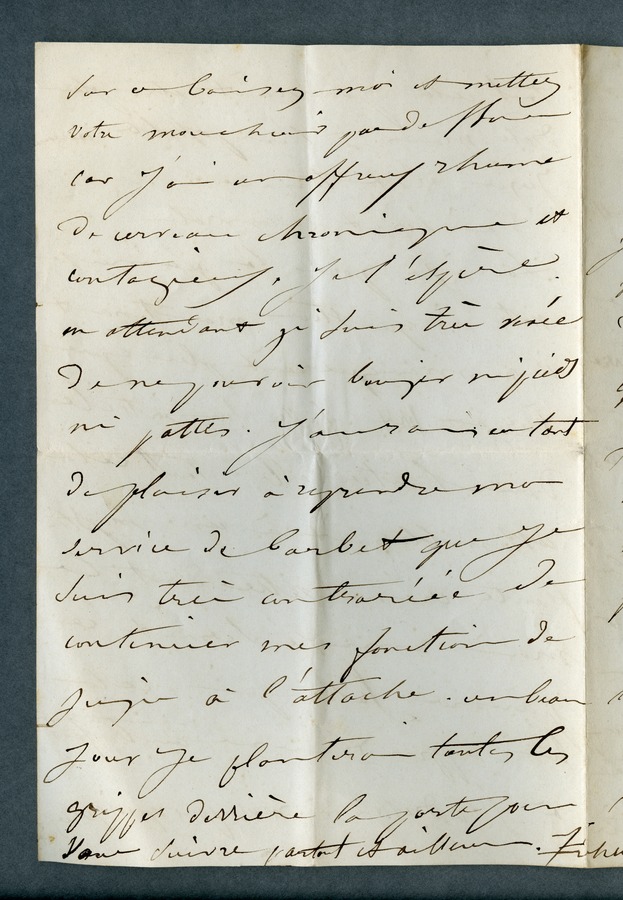 sur ce baisez-moi et mettez
votre mouchoir
car j'ai un affreux rhume
de cerveau chronique et
contagieux, je l'espère.
en attendant je suis très vexée
de ne pouvoir bouger ni pied
ni pattes. J'aurais eu tant
de plaisir à reprendre mon
service de barbet que je
suis très contrariée de
continuer mes fonction de
à l'attache. un beau
jour je planterai toutes les
grippes derrière la porte pour
vous suivre partout et ailleurs.